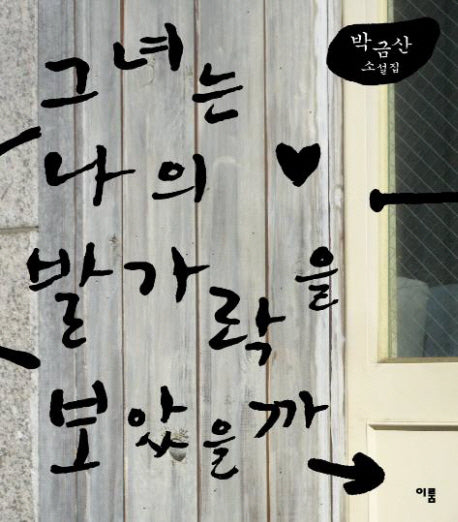 그녀는
나의
발가락을
보았을까
박금산
소설집
이룸